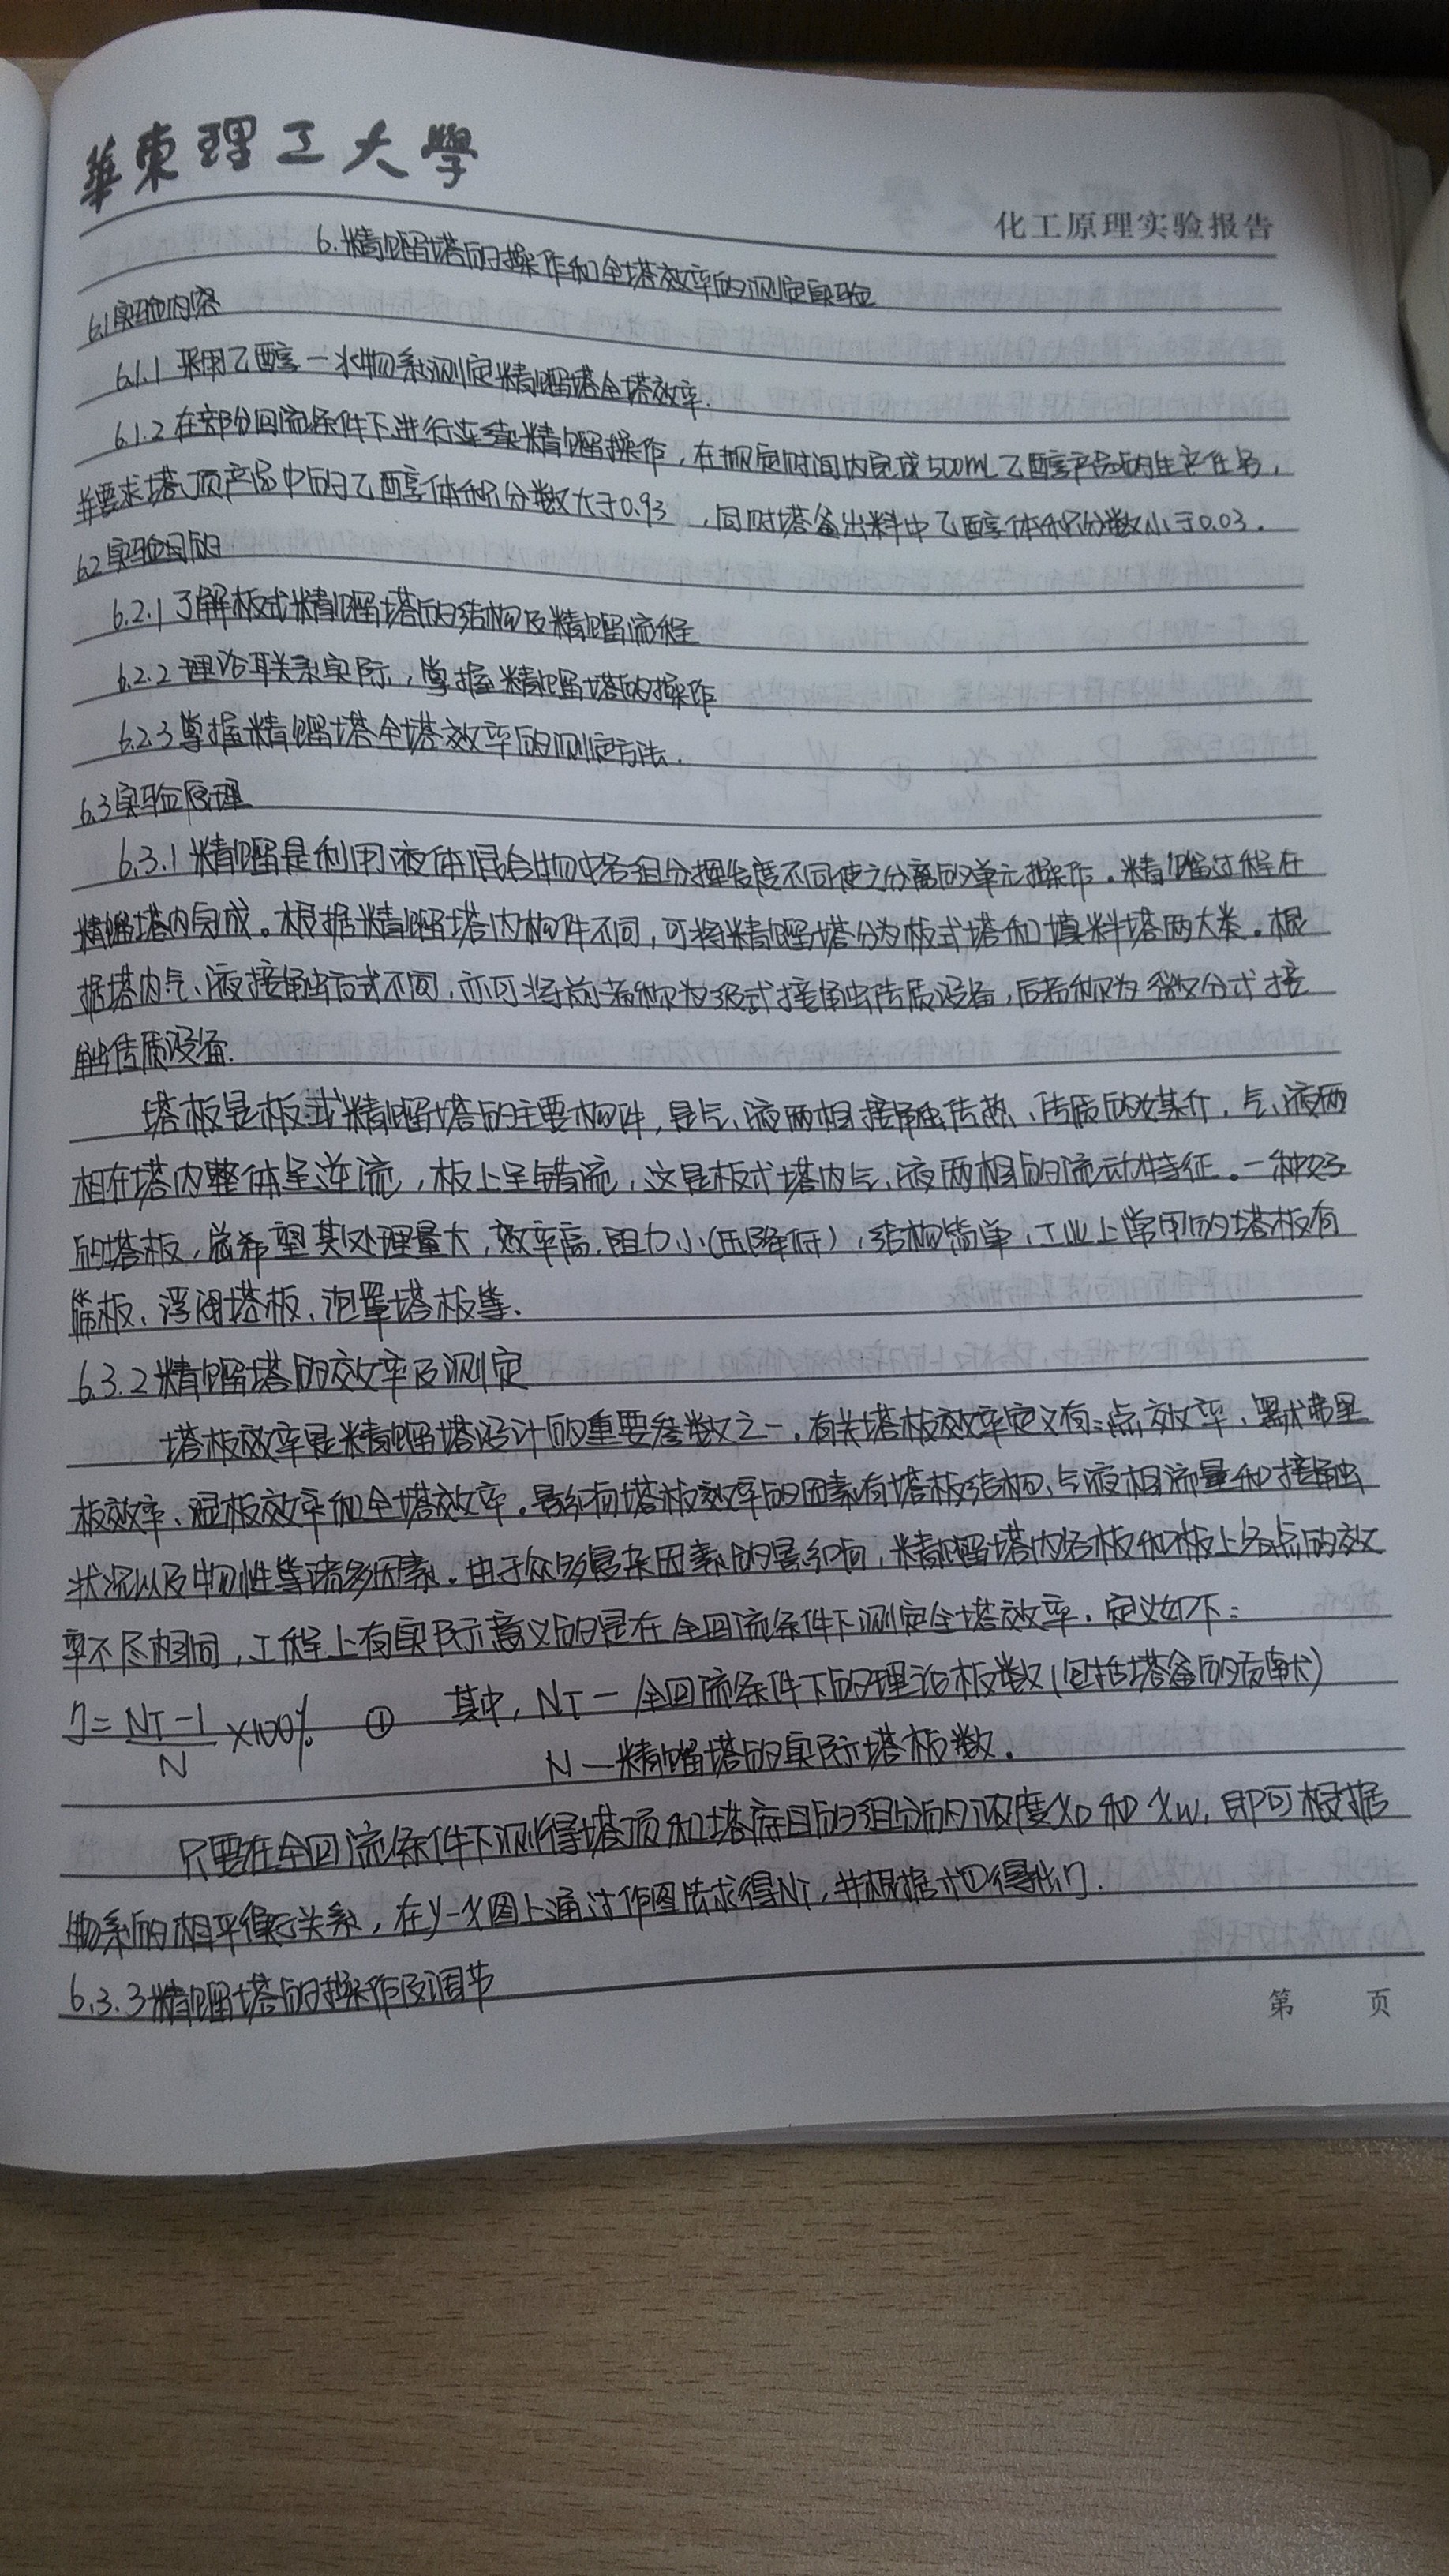 華東理工大學
化工原理实验报告
6.精馏塔的操作和全塔效率的测定实验
6.1实验内容
6.1.1 采用乙醇—水物系测定精馏塔全塔效率.
6.1.2 在部分回流条件下进行连续精馏操作,在规定时间内完成500mL乙醇产品的生产任务,
并要求塔顶产品中的乙醇体积分数大于0.93,同时塔釜出料中乙醇体积分数小于0.03.
6.2实验目的
6.2.1 了解板式精馏塔的结构及精馏流程
6.2.2 理论联系实际,掌握精馏塔的操作
6.2.3 掌握精馏塔全塔效率的测定方法.
6.3实验原理
6.3.1 精馏是利用液体混合物中各组分挥发度不同使之分离的单元操作.精馏过程在
精馏塔内完成。根据精馏塔内构件不同,可将精馏塔分为板式塔和填料塔两大类.根
据塔内气、液接触方式不同,亦可将前者称为级式接触传质设备,后者称为微分式接
触传质设备.
塔板是板式精馏塔的主要构件,是气、液两相接触传热、传质的媒介,气、液两
相在塔内整体呈逆流,板上呈错流,这是板式塔内气、液两相的流动特征。一种好
的塔板,总希望其处理量大,效率高,阻力小(压降低),结构简单,工业上常用的塔板有
筛板、浮阀塔板、泡罩塔板等.
6.3.2 精馏塔的效率及测定
塔板效率是精馏塔设计的重要参数之一.有关塔板效率定义有:点效率、默弗里
板效率、湿板效率和全塔效率.影响塔板效率的因素有塔板结构、气液相流量和接触
状况以及物性等诸多因素.由于众多复杂因素的影响,精馏塔内各板和板上各点的效
率不尽相同,工程上有实际意义的是在全回流条件下测定全塔效率.定义如下:
η=(NT-1)/N×100% ① 其中,NT—全回流条件下的理论板数(包括塔釜的贡献)
N—精馏塔的实际塔板数.
只要在全回流条件下测得塔顶和塔底目的组分的浓度xD和xW,即可根据
物系的相平衡关系,在y-x图上通过作图法求得NT,并根据式①得出η.
6.3.3 精馏塔的操作及调节
第 页